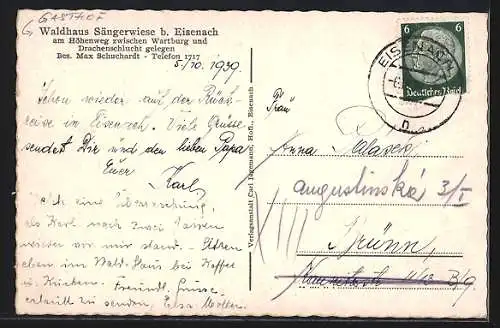 GASTHOF
Waldhaus Sängerwiese b. Eisenach
am Höhenweg zwischen Wartburg und
Drachenschlucht gelegen
Bes. Max Schuchardt - Telefon 1717
5/10. 1939.
Schon wieder auf der Rück-
reise in Eisenach. Viele Grüsse
sendet Dir und den lieben Papa
Euer
Karl
eine Überraschung,
als Karl nach zwei Jahren
wieder vor mir stand. Sitzen
eben im Wald-Haus bei Kaffee
u. Kuchen. Freundl. Grüsse
erlaubt zu senden, Elsa
Verlagsanstalt Carl Jagemann, Hofl., Eisenach
6 6
Deutsches Reich
EISENACH
n
Frau
Anna
Augustinská 3/I
Brünn